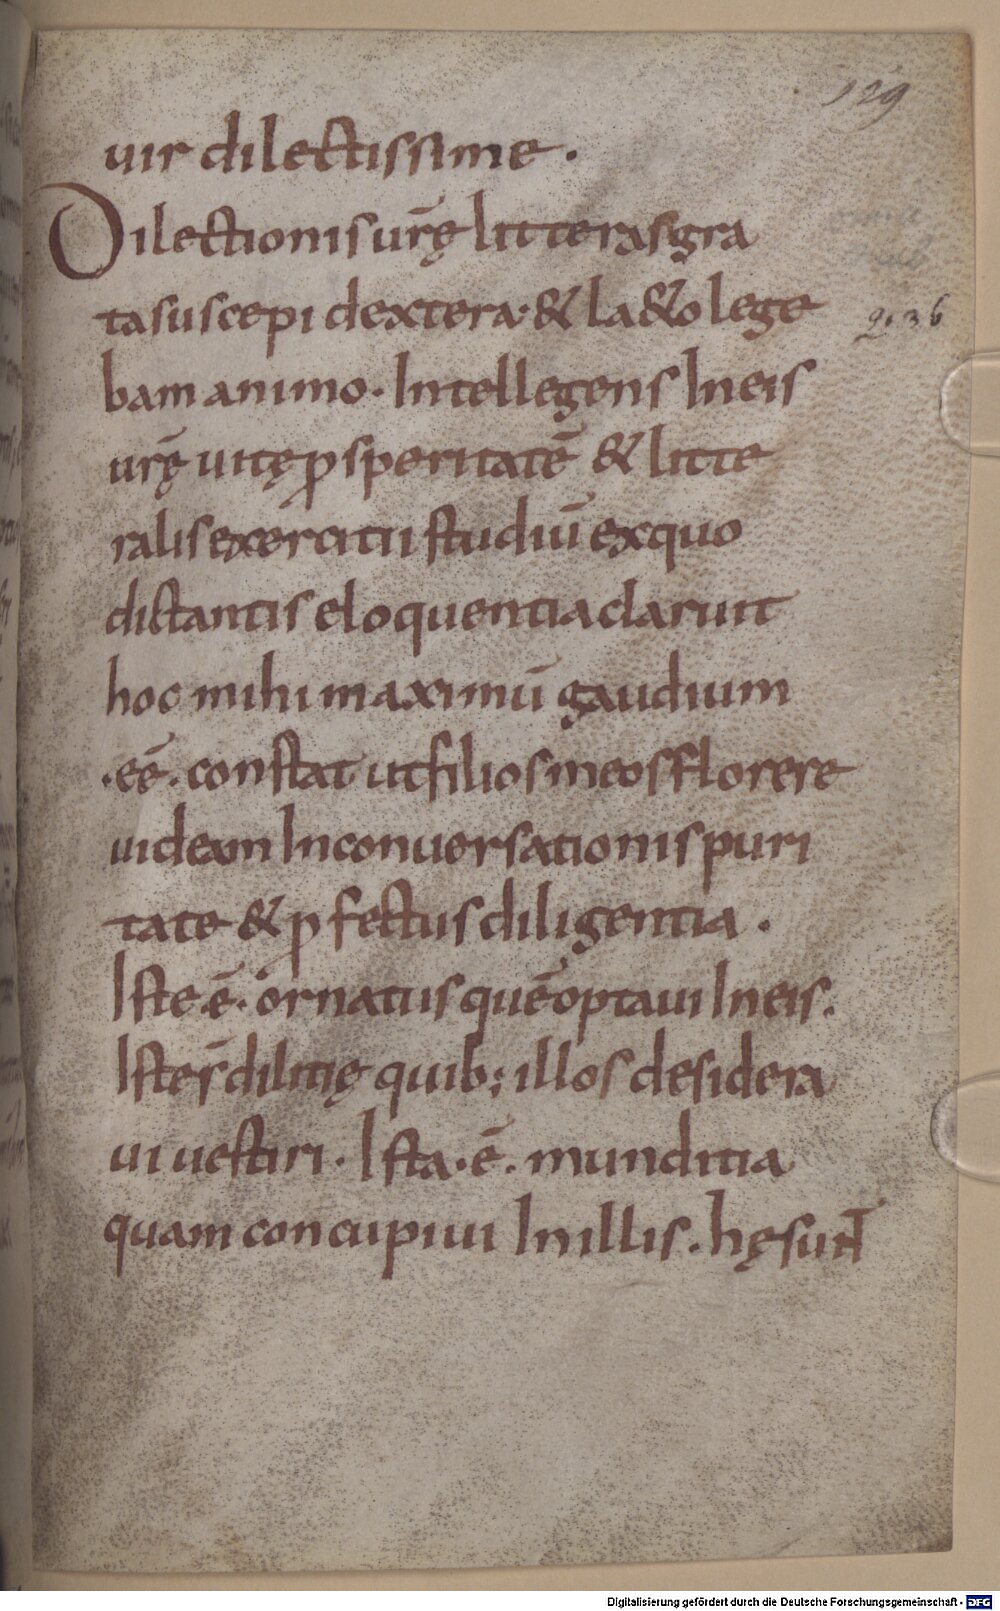 129
uir dilectissime.
Dilectionis ur̄ę litteras gra
ta suscepi dextera·& la&o lege
bam animo· Intellegens In eis
ur̄ę uitę p̱speritatē & litte
ralis exercitii studiū ex quo
dictantis eloquentia claruit
hoc mihi maximū gaudium
·eē· constat ut filios meos florere
uideam In conuersationis puri
tate & p̱fectus diligentia.
Iste·ē· ornatus quē optaui In eis.
Iste r̄ dilitię quib; illos desidera
ui uestiri· Ista·ē· munditia
quam concupiui In illis. hę sunt
q. 36
Digitalisierung gefördert durch die Deutsche Forschungsgemeinschaft - DFG